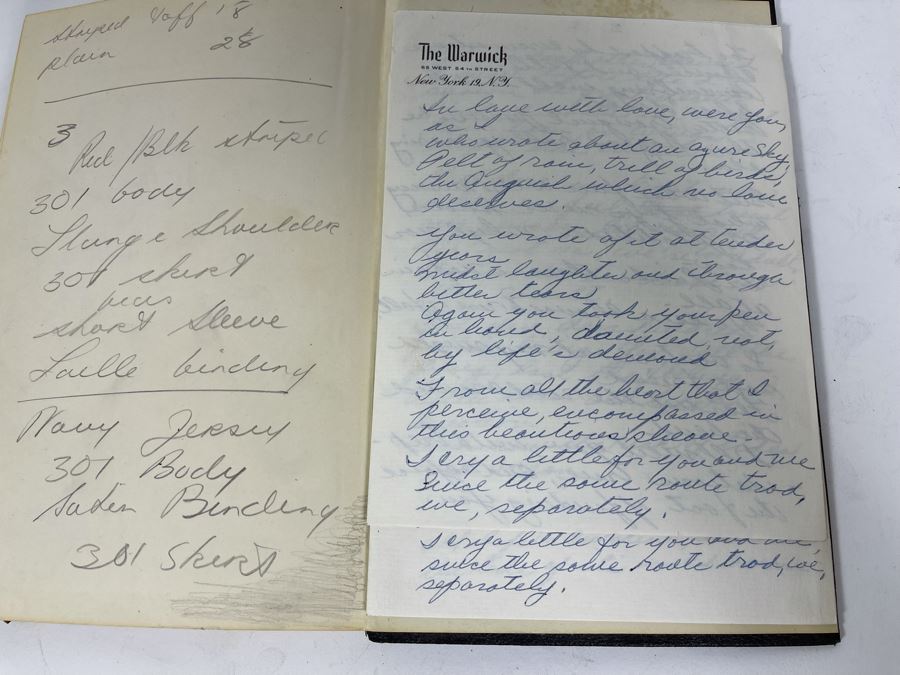 striped Taff 18
plain 28
3
Red/Blk striped
301 body
Flange Shoulder
301 skirt
bias
short Sleeve
Faille binding
Navy Jersey
301 Body
Satin Binding
301 Skirt
The Warwick
65 WEST 54TH STREET
New York 19, N.Y.
In love with love, were you,
as I
who wrote about an azure sky,
Pelt of rain, trill of birds,
the Anguish which no love
deserves.
You wrote of it at tender
years
midst laughter and through
bitter tears
Again you took your pen
in hand, daunted not,
by life's demand
From all the heart that I
perceive, encompassed in
this beauteous sheave-
I cry a little for you and me
Since the same route trod,
we, separately.
I cry a little for you and me,
since the same route trod, we,
separately.